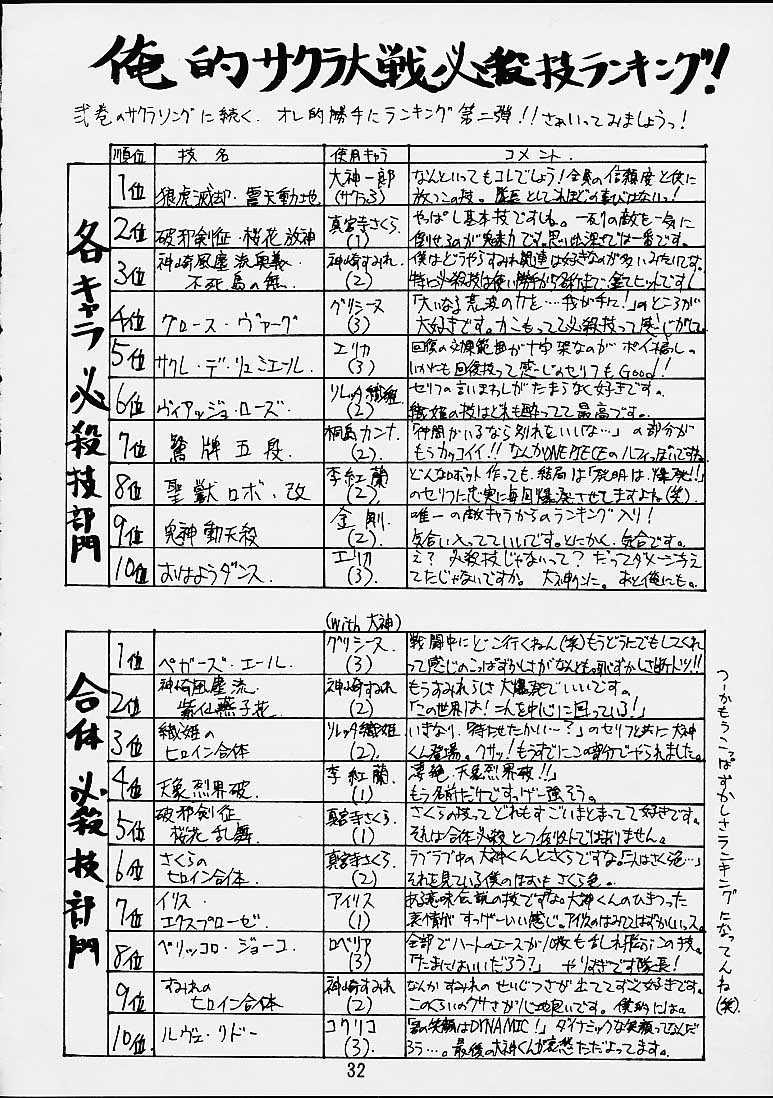 俺的サクラ大戦必殺技ランキング!
弐巻のサクラソングに続く、オレ的勝手にランキング第二弾!!さぁいってみましょうっ!
各キャラ必殺技部門
順位 技名 使用キャラ コメント
1位 狼虎滅却・震天動地 大神一郎 (サクラ3)
なんといってもコレでしょう!全員の信頼度と共に
放つこの技。隊長としてこれほどの喜びはないっ!
2位 破邪剣征・桜花放神 真宮寺さくら (1)
やっぱし基本技ですしね。一列の敵も一気に
倒せるのが魅力です。思い出深さでは一番です。
3位 神崎風塵流奥義・不死鳥の舞 神崎すみれ (2)
僕はどうやらすみれ関連は好きなのが多いみたいです。
特に必殺技は使い勝手から名前まで全てヒットです!
4位 グロース・ヴァーグ グリシーヌ (3)
「大いなる荒波の力を…我が手に!」のところが
大好きです。力こもってて必殺技って感じがして。
5位 サクレ・デ・リュミエール エリカ (3)
回復の効果範囲が十字架なのがポイント高しの
いかにも回復技って感じのセリフもGood!
6位 ヴィアッジョ・ローズ ソレッタ織姫 (2)
セリフの言いまわしがたまらなく好きです。
織姫の技はどれも酔ってて最高です。
7位 鷲牌五段 桐島カンナ (2)
「仲間がいるなら別れをいいな…」の部分が
もうカッコイイ!!なんかONE PIECEのルフィっぽいですね
8位 聖獣ロボ・改 李紅蘭 (2)
どんなロボット作っても、結局は「発明は、爆発!!」
のセリフに忠実に毎回爆発させてますよね(笑)
9位 鬼神動天殺 金剛 (2)
唯一の敵キャラからのランキング入り!
気合い入ってていいです。とにかく、気合です。
10位 おはようダンス エリカ (3)
え?必殺技じゃないって?だってダメージ与え
てたじゃないですか。大神クンに。あと俺にも。
合体必殺技部門
(with 大神)
1位 ペガーズ・エール グリシーヌ (3)
戦闘中にどこ行くねん(笑)もうどうにでもしてくれ
って感じのこっぱずかしさがなんとも。恥ずかしさ断トツ!!
2位 神崎風塵流 紫仙燕子花 神崎すみれ (2)
もうすみれらしさ大爆発でいいです。
「この世界は!二人を中心に回っている!」
3位 織姫のヒロイン合体 ソレッタ織姫 (2)
いきなり、「待たせたかい…?」のセリフと共に大神
くん登場。クサッ!もうすでにこの部分でやられました。
4位 天象烈界破 李紅蘭 (1)
「凄絶、天象烈界破!!」
もう名前だけですっげー強そう。
5位 破邪剣征 桜花乱舞 真宮寺さくら (1)
さくらの技ってどれもすごいまとまってて好きです。
それは合体必殺とて例外ではありません。
6位 さくらのヒロイン合体 真宮寺さくら (2)
ラブラブ中の大神くんとさくらですな。「人はさくら色…」
それを見ている僕のほほもさくら色。
7位 イリス・エクスプローゼ アイリス (1)
ある意味伝説の技ですな。大神くんのひきつった
表情がすっげーいい感じ。アイリスのはみてはずかしいっス。
8位 ベリッコロ・ジョーコ ロベリア (3)
全部でハートのエースが10枚もあしれ飛ぶこの技。
「たまにはいいだろう?」やりすぎです隊長!
9位 すみれのヒロイン合体 神崎すみれ (2)
なんかすみれのせいじつさが出ててすごく好きです。
このくらいのクサさが心地良いです。僕的には。
10位 ルヴェ・リドー コクリコ (3)
「君の笑顔はDYNAMIC!」ダイナミックな笑顔ってなんだ
ろう…。最後の大神くんが哀愁ただよってます。
つーかもうこっぱずかしさランキングになってんね(笑)
32